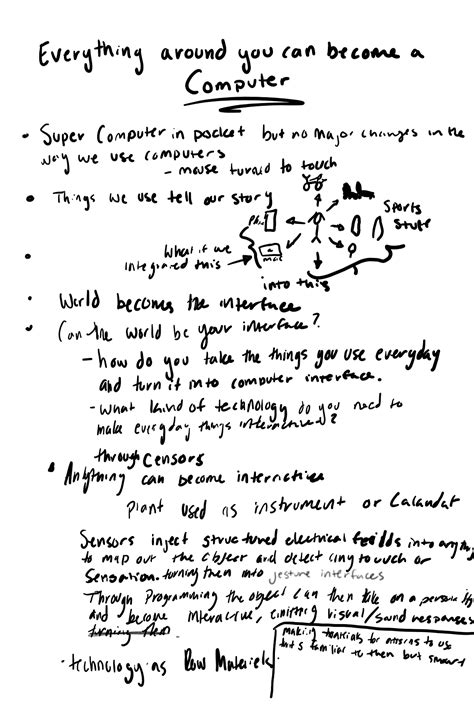 Everything around you can become a
Computer
• Super Computer in pocket but no major changes in the
way we use computers
- mouse turned to touch
• Things we use tell our story
Sports
Stuff
phone
What if we
integrated this
mac
into this
• World becomes the interface
• Can the world be your interface?
- how do you take the things you use everyday
and turn it into computer interface.
- what kind of technology do you need to
make everyday things interactive?
through Censors
• Anything can become interactive
Plant used as instrument or Calandar
Sensors inject structured electrical feilds into anything
to map out the object and detect any touch or
Sensation. turning them into jesture interfaces
Through Programming the object can then take on a
and become interactive, emitting visual/sound responses
turning them
• technology as Raw Materials
making materials for to use
that's familiar to them but smart